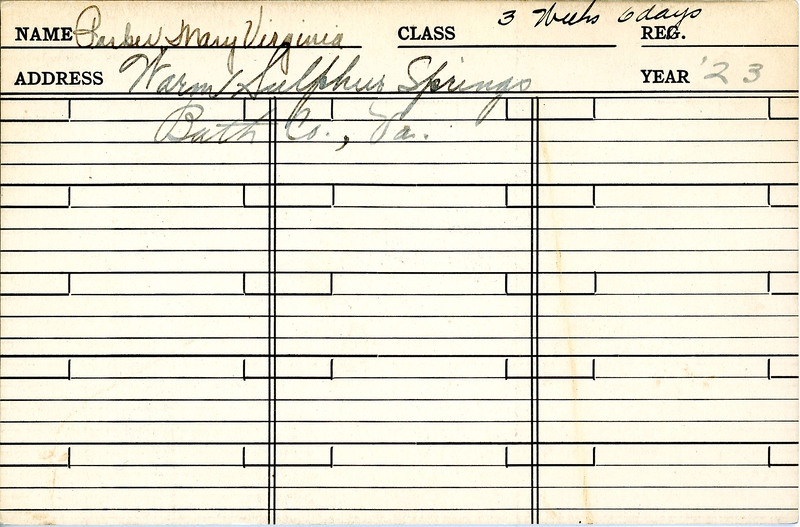 NAME Barber Mary Virginia CLASS 3 Weeks 6 days REG.
ADDRESS Warm Sulphur Springs YEAR '23
Bath Co., Va.